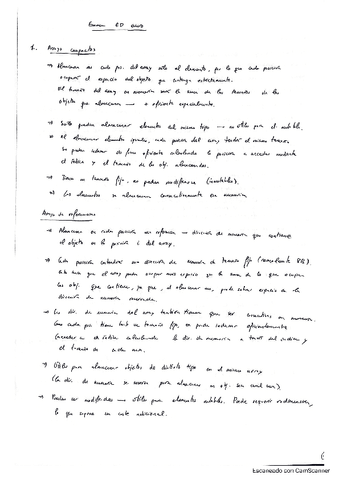 Examen ED enero
1. Arrays compactos
→ Almacenan en cada pos. del array sólo el elemento, por lo que cada posición
ocupará el espacio del objeto que contenga estrictamente.
El tamaño del array en memoria será la suma de los tamaños de los
objetos que almacenan → eficiente espacialmente.
→ Sólo pueden almacenar elementos del mismo tipo
→ Al almacenar elementos iguales, cada posición del array tendrá el mismo tamaño.
Se puede indexar de forma eficiente calculando la posición a acceder mediante
el índice y el tamaño de los obj. almacenados.
→ Tiene un tamaño fijo, no pueden modificarse (inmutables).
→ Los elementos se almacenan consecutivamente en memoria
Arrays de referencias
→ Almacenan en cada posición una referencia → dirección de memoria que contiene
el objeto en la posición i del array.
→ Cada posición contendrá una dirección de memoria de tamaño fijo
Esto hace que el array pueda ocupar más espacio que la suma de lo que ocupan
los obj. que contiene, ya que, al almacenar uno, puede sobrar espacio en la
dirección de memoria reservada.
→ Las dir. de memoria del array también tienen que ser consecutivas en memoria.
Como cada pos tiene un tamaño fijo, se puede indexar eficientemente
calculando la dir. de memoria a través del índice y
el tamaño de cada una.
→ Útiles para almacenar objetos de distinto tipo en el mismo array
(la dir. de memoria se reserva para almacenar un obj. sea cual sea)
→ Pueden ser modificados → útiles para elementos mutables. Puede requerir
lo que supone un coste adicional.
Escaneado con CamScanner